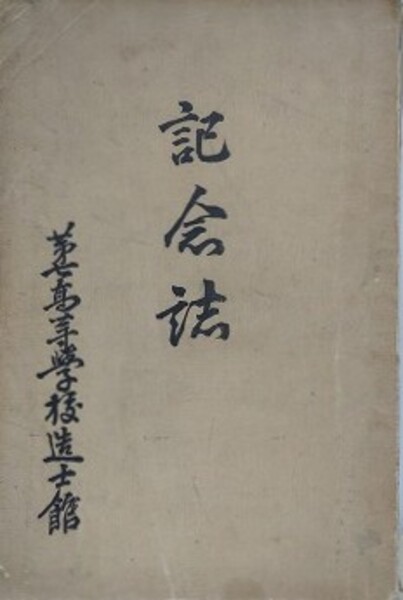 記念誌
第七高等学校造士館